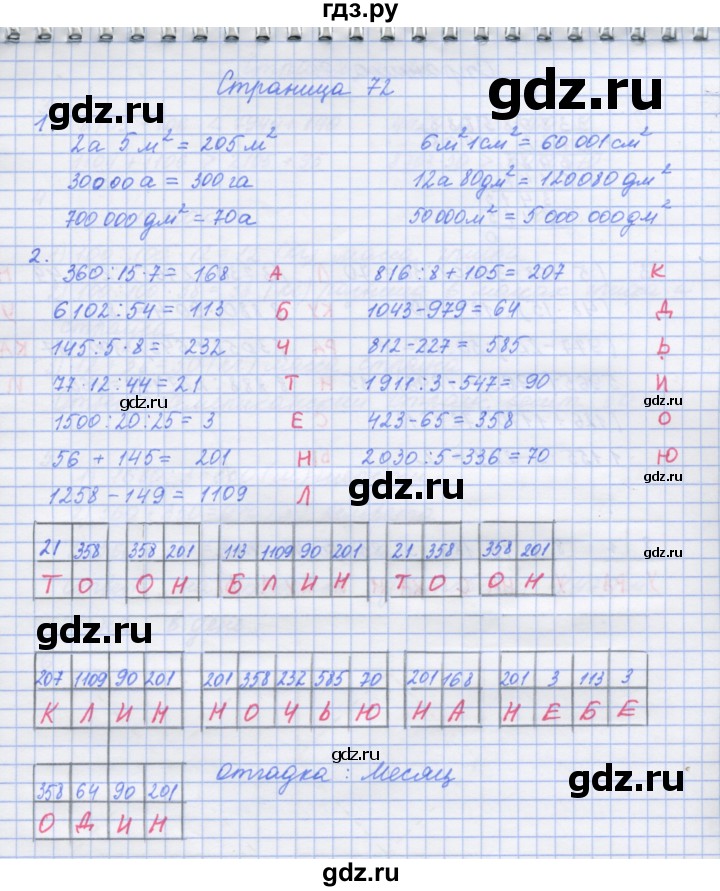 гдз.ру
Страница 72
gdz.ru gdz.ru
1
2а 5м² = 205м² 6м²1см² = 60 001см²
30000а = 300га 12а 80дм² = 120080 дм²
700 000 дм² = 70а 50000м² = 5 000 000дм²
2.
360:15·7= 168 А 816:8+105= 207 К
6102:54= 113 Б 1043-979= 64 Д
145:5·8= 232 Ч 812-227= 585 Ь
77·12:44=21 Т 1911:3-547= 90 И
gdz.ru gdz.ru
1500:20:25= 3 Е 423-65= 358 О
56 + 145= 201 Н 2030:5-336=70 Ю
gdz.ru gdz.ru
1258-149= 1109 Л
21 358 358 201 113 1109 90 201 21 358 358 201
gdz.ru
Т О О Н Б Л И Н Т О О Н
gdz.ru gdz.ru
207 1109 90 201 201 358 232 585 70 201 168 201 3 113 3
К Л И Н Н О Ч Ь Ю Н А Н Е Б Е
gdz.ru
358 64 90 201 Отгадка: Месяц
gdz.ru
О Д И Н
gdz.ru